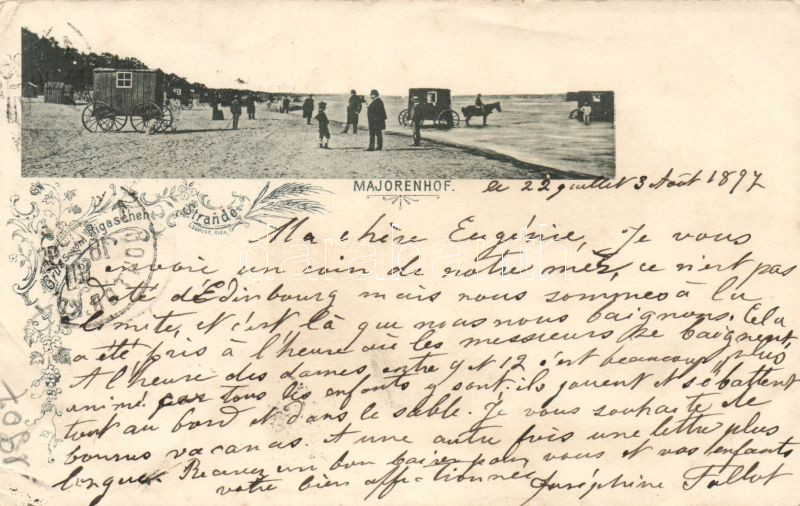 MAJORENHOF.
le 22 juillet 3 Août 1897
Gruss vom Rigaschen
Strande
Ma chère Eugénie, Je vous
envoie un coin de notre mer, ce n'est pas
d'Edinbourg mais nous sommes à la
limite, et c'est là que nous nous baignons. Cela
a été pris à l'heure où les messieurs se baignent,
A l'heure des dames, entre 9 et 12 c'est beaucoup plus
animé car tous les enfants y sont: ils jouent et s'ébattent
tout au bord et dans le sable. Je vous souhaite de
bonnes vacances et une autre fois une lettre plus
longue. Recevez un bon baiser pour vous et vos enfants
votre bien affectionnée Joséphine